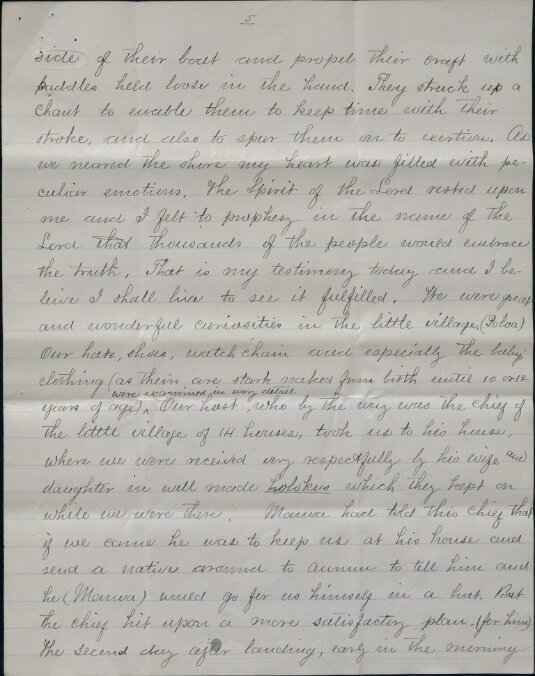 5
side of their boat and propel their craft with
paddles held loose in the hand. They struck up a
chant to enable them to keep time with their
stroke, and also to spur them on to exertion. As
we neared the shore my heart was filled with pe-
culiar emotions. The Spirit of the Lord rested upon
me and I felt to prophesy in the name of the
Lord that thousands of the people would embrace
the truth. That is my testimony today and I be-
lieve I shall live to see it fulfilled. We were great
and wonderful curiosities in the little village, (Poloa)
Our hats, shoes, watch chain and especially the baby
clothing (as theirs are stark naked from birth until 10 or 12
were examined in every detail
years of age). Our host, who by the way was the chief of
the little village of 14 houses, took us to his house,
where we were received very respectfully by his wife and
daughter in well made holokus which they kept on
while we were there. Manoa had told this chief that
if we came he was to keep us at his house and
send a native around to aunuu to tell him and
he (Manoa) would go for us himself in a boat. But
the chief hit upon a more satisfactory plan. (for him)
The second day after landing, early in the morning